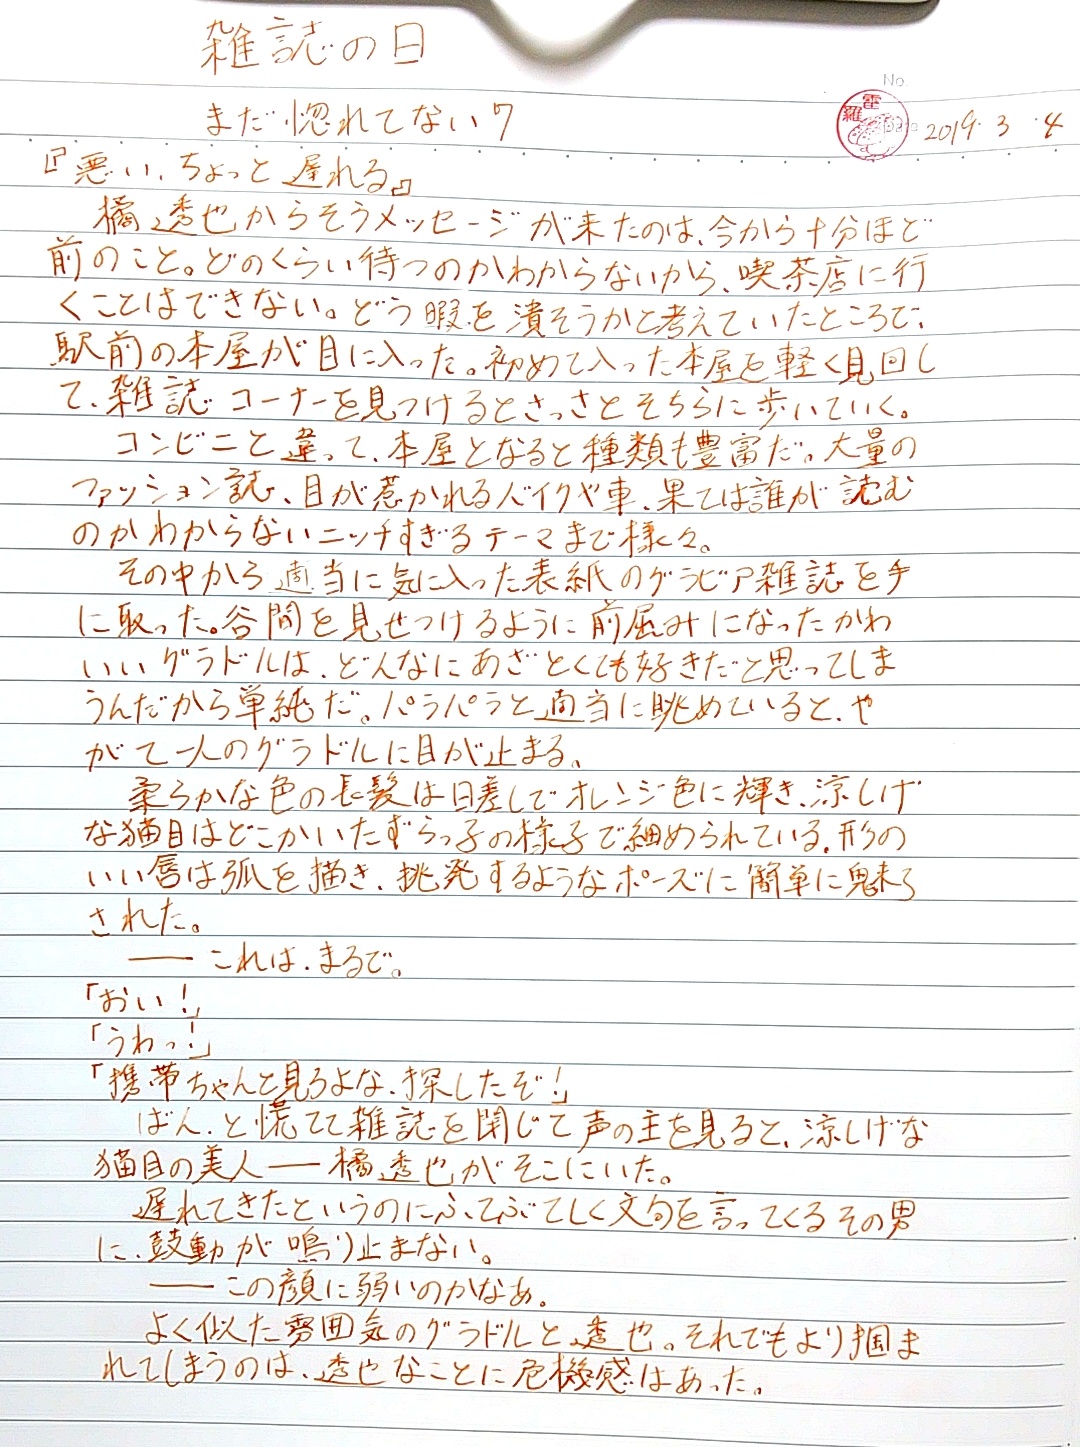 雑誌の日
No.
まだ惚れてない7
雷
羅
Date
2019. 3. 4
『悪い、ちょっと遅れる』
橘透也からそうメッセージが来たのは、今から十分ほど
前のこと。どのくらい待つのかわからないから、喫茶店に行
くことはできない。どう暇を潰そうかと考えていたところで、
駅前の本屋が目に入った。初めて入った本屋を軽く見回し
て、雑誌コーナーを見つけるとさっさとそちらに歩いていく。
コンビニと違って、本屋となると種類も豊富だ。大量の
ファッション誌、目が惹かれるバイクや車、果ては誰が読む
のかわからないニッチすぎるテーマまで様々。
その中から適当に気に入った表紙のグラビア雑誌を手
に取った。谷間を見せつけるように前屈みになったかわ
いいグラドルは、どんなにあざとくても好きだと思ってしま
うんだから単純だ。パラパラと適当に眺めていると、や
がて一人のグラドルに目が止まる。
柔らかな色の長髪は日差しでオレンジ色に輝き、涼しげ
な猫目はどこかいたずらっ子の様子で細められている。形の
いい唇は弧を描き、挑発するようなポーズに簡単に魅了
された。
――これは、まるで。
「おい！」
「うわっ！」
「携帯ちゃんと見ろよな、探したぞ！」
ばん、と慌てて雑誌を閉じて声の主を見ると、涼しげな
猫目の美人――橘透也がそこにいた。
遅れてきたというのにふてぶてしく文句を言ってくるその男
に、鼓動が鳴り止まない。
――この顔に弱いのかなあ。
よく似た雰囲気のグラドルと透也。それでもより掴ま
れてしまうのは、透也なことに危機感はあった。